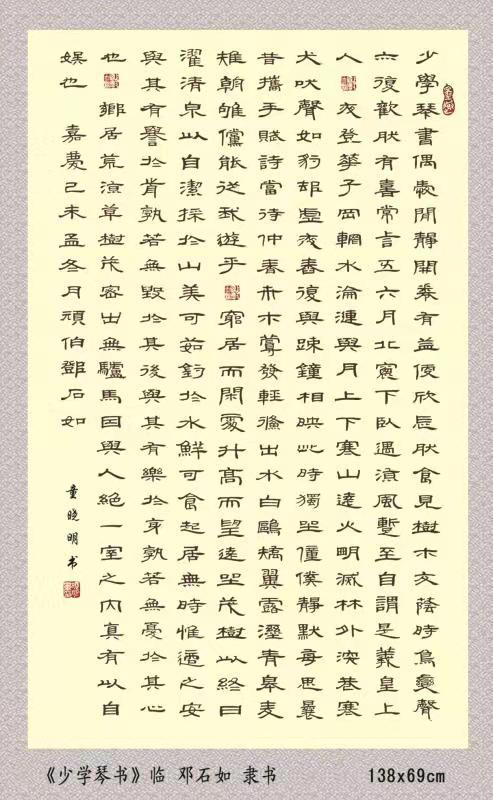 少學琴書偶愛閒靜開卷有益便欣忘然食見樹木交蔭時鳥變聲
亦復歡然有喜常言五六月北窗下臥遇涼風暫至自謂是羲皇上
人 夜登華子岡輞水淪漣與月上下寒山遠火明滅林外深巷寒
犬吠聲如豹邨墟夜舂復與疎鐘相映此時獨坐僮僕靜默每思曩
昔攜手賦詩當待仲春卉木蔓發輕鯈出水白鷗矯翼露溼青皋麥
雉朝雊儻能從我遊乎 窮居而閒處升高而望遠坐茂樹以終日
濯清泉以自潔採於山美可茹釣於水鮮可食起居無時惟適之安
與其有譽於前孰若無毀於其後與其有樂於身孰若無憂於其心
也 鄉居荒涼草樹茂密出無驢馬因與人絕一室之內真有以自
娛也 嘉慶己未孟冬月頑伯鄧石如
童晓明书
《少学琴书》临 邓石如 隶书 138x69cm